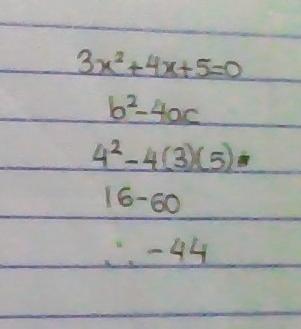 3x²+4x+5=0
b²-4ac
4²-4(3)(5)
16-60
∴ -44